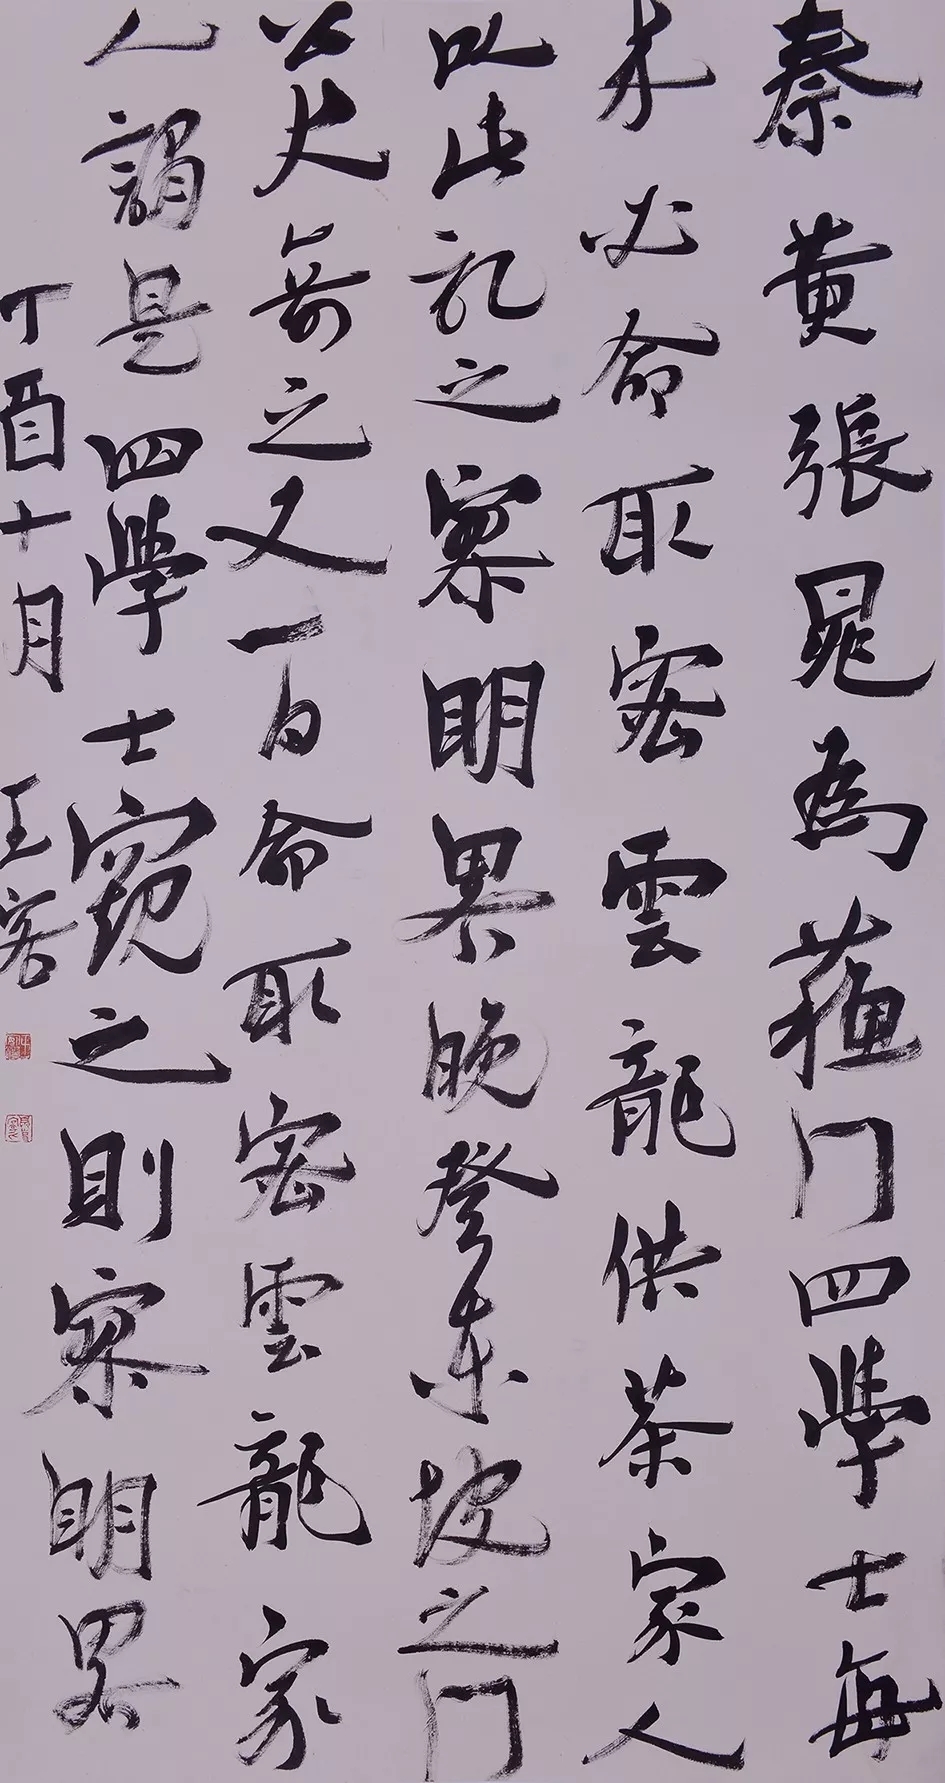 秦黄張晁為蘇門四學士每
来必命取密雲龍供茶家人
以此記之寮明畧晚登東坡之門
公大奇之又一日命取密雲龍家
人謂是四學士窺之則寮明畧
丁酉十月 王客